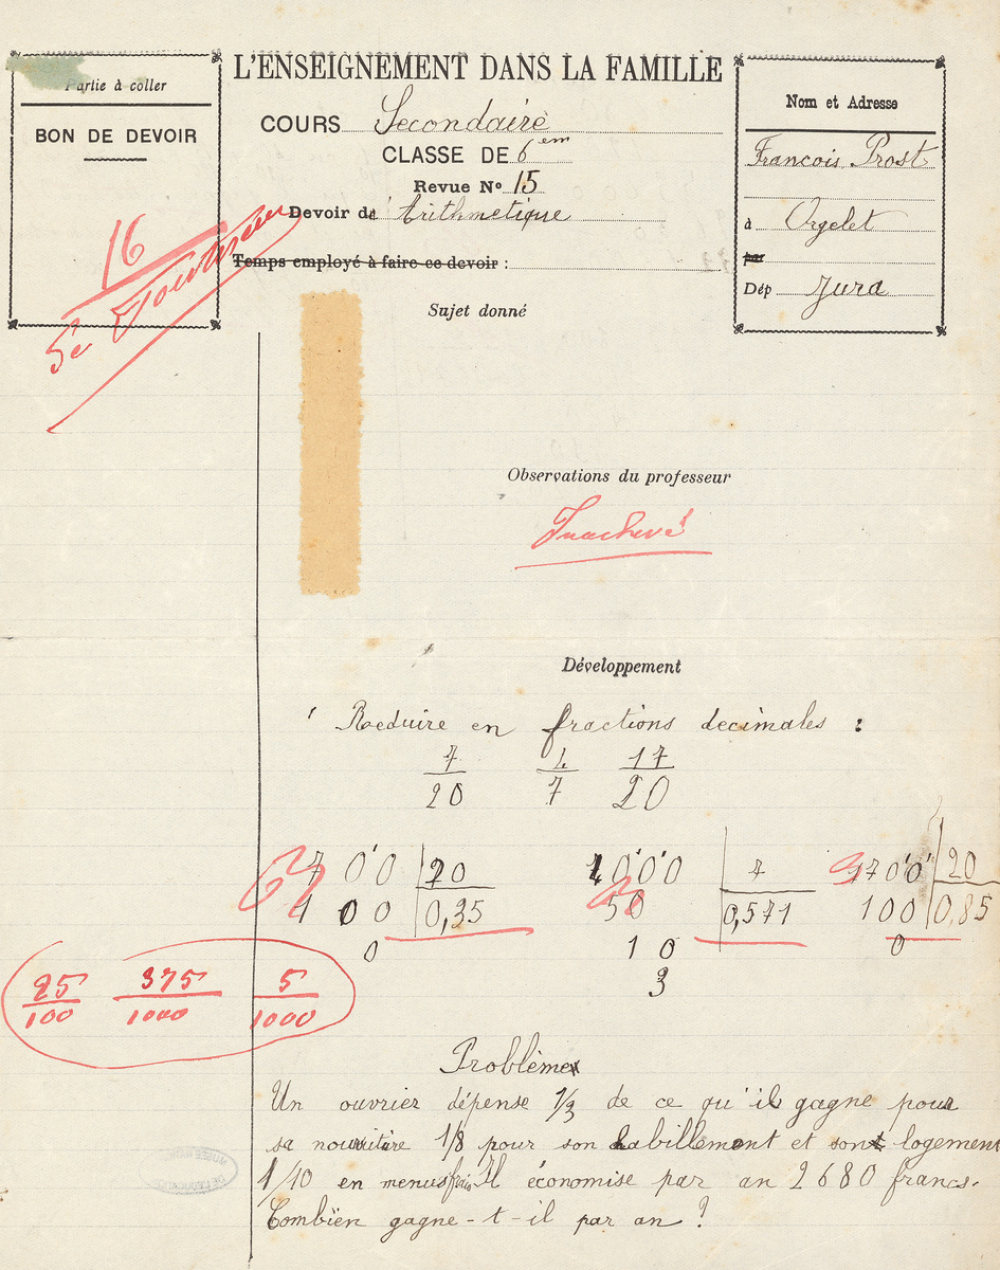 Partie à coller
BON DE DEVOIR
L'ENSEIGNEMENT DANS LA FAMILLE
COURS Secondaire
CLASSE DE 6em
Revue No 15
Devoir de Arithmetique
Temps employé à faire ce devoir :
Nom et Adresse
Francois Prost
à Orgelet
par
Dép Jura
16
5e
Sujet donné
Observations du professeur
Inachevé
Développement
Raeduire en fractions decimales :
7 4 17
20 7 20
7 0'0 20
1 0 0 0,35
0
4 0'0'0 7
5 0 0,571
1 0
3
1 7 0'0' 20
1 0 0 0,85
0
25 375 5
100 1000 1000
Problème
Un ouvrier dépense 1/3 de ce qu'il gagne pour
sa nourritire 1/8 pour son habillement et son logement
1/10 en menus frais Il économise par an 2680 francs.
Combien gagne-t-il par an ?